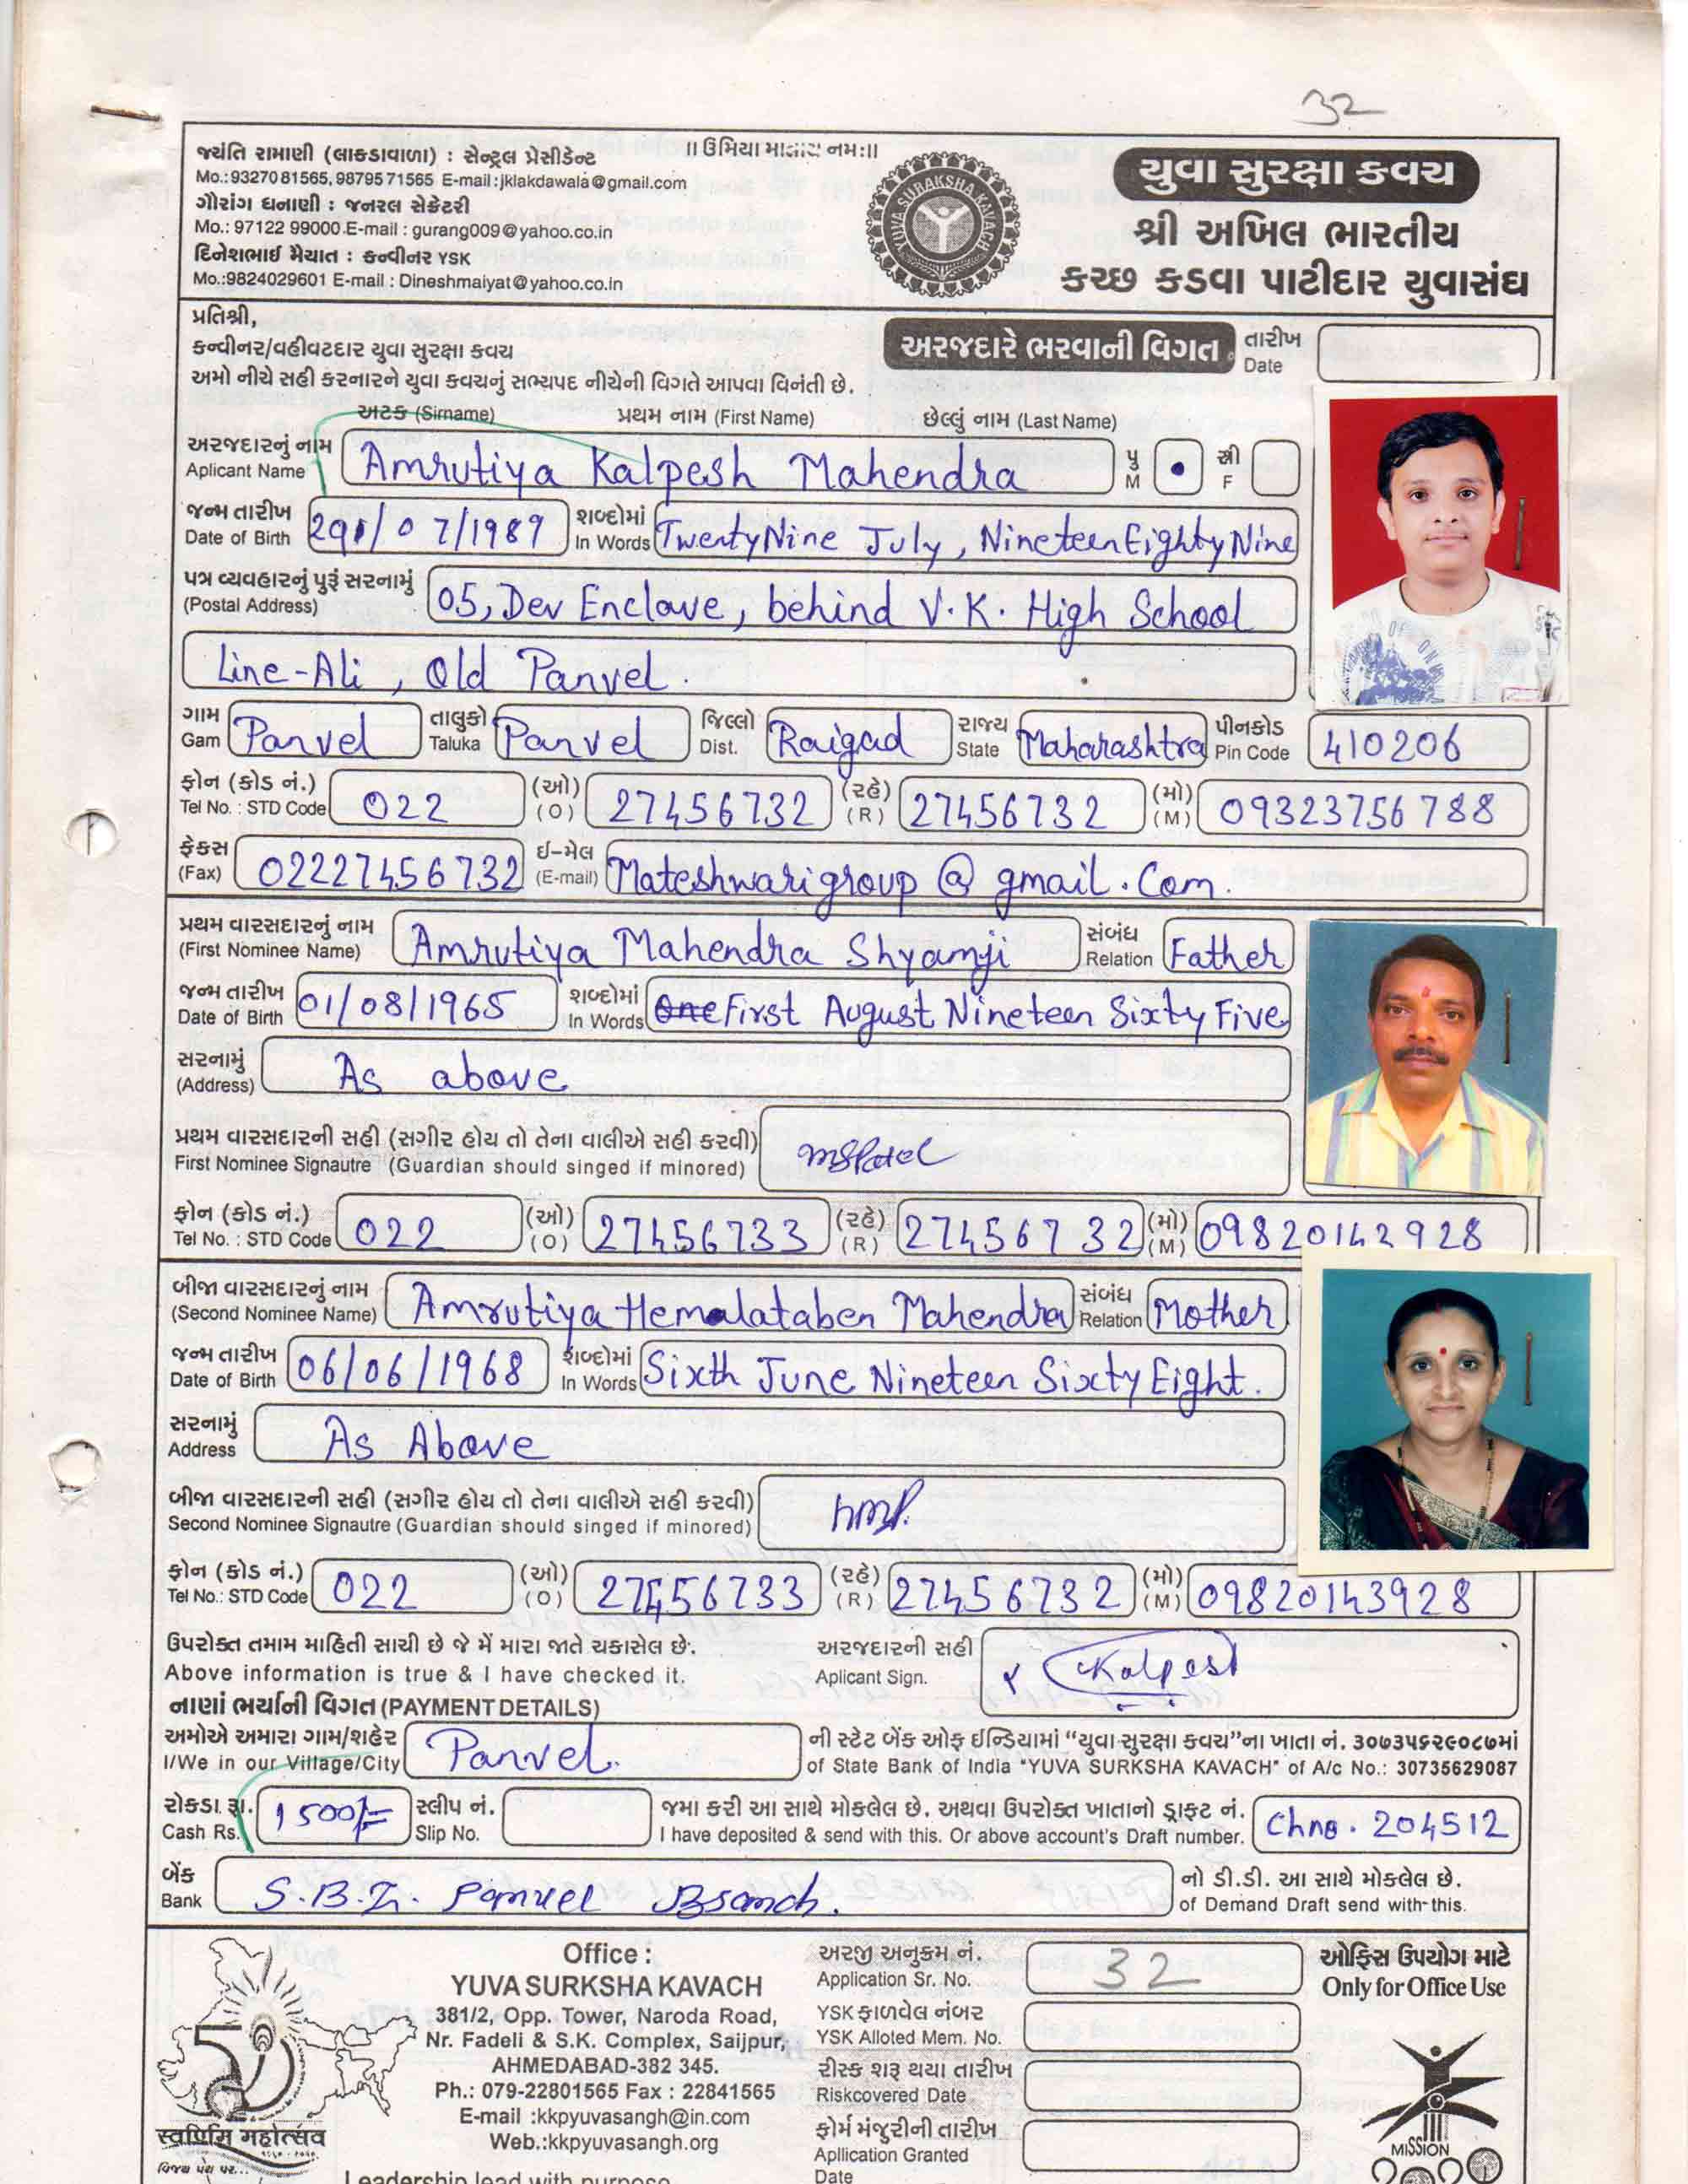 32
જયંતિ રામાણી (લાકડાવાળા) : સેન્ટ્રલ પ્રેસીડેન્ટ
Mo.:9327081565,9879571565 E-mail:jklakdawala@gmail.com
ગૌરાંગ ધનાણી : જનરલ સેક્રેટરી
Mo.: 97122 99000 E-mail : gurang009@yahoo.co.in
દિનેશભાઈ મૈયાત : કન્વીનર YSK
Mo.:9824029601 E-mail : Dineshmaiyat@yahoo.co.in
॥ ઉમિયા માતાય નમઃ॥
YUVA SURAKSHA KAVACH
યુવા સુરક્ષા કવચ
શ્રી અખિલ ભારતીય
કચ્છ કડવા પાટીદાર યુવાસંઘ
પ્રતિશ્રી,
કન્વીનર/વહીવટદાર યુવા સુરક્ષા કવચ
અમો નીચે સહી કરનારને યુવા કવચનું સભ્યપદ નીચેની વિગતે આપવા વિનંતી છે.
અરજદારે ભરવાની વિગત
તારીખ
Date
અટક (Sirname) પ્રથમ નામ (First Name) છેલ્લું નામ (Last Name)
અરજદારનું નામ
Aplicant Name Amrutiya Kalpesh Mahendra પુ M • સ્ત્રી F
જન્મ તારીખ
Date of Birth 29/07/1989 શબ્દોમાં In Words Twenty Nine July, Nineteen Eighty Nine
પત્ર વ્યવહારનું પુરૂં સરનામું
(Postal Address) 05, Dev Enclave, behind V.K. High School
Line-Ali, Old Panvel.
ગામ Gam Panvel તાલુકો Taluka Panvel જિલ્લો Dist. Raigad રાજ્ય State Maharashtra પીનકોડ Pin Code 410206
ફોન (કોડ નં.)
Tel No. : STD Code 022 (ઓ) (O) 27456732 (રહે) (R) 27456732 (મો) (M) 09323756788
ફેક્સ
(Fax) 02227456732 ઈ-મેલ (E-mail) Mateshwarigroup@gmail.Com.
પ્રથમ વારસદારનું નામ
(First Nominee Name) Amrutiya Mahendra Shyamji સંબંધ Relation Father
જન્મ તારીખ
Date of Birth 01/08/1965 શબ્દોમાં In Words One First August Nineteen Sixty Five
સરનામું
(Address) As above
પ્રથમ વારસદારની સહી (સગીર હોય તો તેના વાલીએ સહી કરવી)
First Nominee Signautre (Guardian should singed if minored) MSPatel
ફોન (કોડ નં.)
Tel No. : STD Code 022 (ઓ) (O) 27456733 (રહે) (R) 27456732 (મો) (M) 09820142928
બીજા વારસદારનું નામ
(Second Nominee Name) Amrutiya Hemalataben Mahendra સંબંધ Relation Mother
જન્મ તારીખ
Date of Birth 06/06/1968 શબ્દોમાં In Words Sixth June Nineteen Sixty Eight.
સરનામું
Address As Above
બીજા વારસદારની સહી (સગીર હોય તો તેના વાલીએ સહી કરવી)
Second Nominee Signautre (Guardian should singed if minored) hmp.
ફોન (કોડ નં.)
Tel No.: STD Code 022 (ઓ) (O) 27456733 (રહે) (R) 27456732 (મો) (M) 09820143928
ઉપરોક્ત તમામ માહિતી સાચી છે જે મેં મારા જાતે ચકાસેલ છે.
Above information is true & I have checked it.
અરજદારની સહી
Aplicant Sign. x Kalpesh
નાણાં ભર્યાની વિગત (PAYMENT DETAILS)
અમોએ અમારા ગામ/શહેર
I/We in our Village/City Panvel.
ની સ્ટેટ બેંક ઓફ ઈન્ડિયામાં “યુવા સુરક્ષા કવચ”ના ખાતા નં. ૩૦૭૩૫૬૨૯૦૮૭માં
of State Bank of India "YUVA SURKSHA KAVACH" of A/c No.: 30735629087
રોકડા રૂા.
Cash Rs. 1500/= સ્લીપ નં. Slip No.
જમા કરી આ સાથે મોકલેલ છે. અથવા ઉપરોક્ત ખાતાનો ડ્રાફ્ટ નં.
I have deposited & send with this. Or above account's Draft number. Chno. 204512
બેંક
Bank S.B.I. Panvel Branch.
નો ડી.ડી. આ સાથે મોકલેલ છે.
of Demand Draft send with this.
50
સ્વર્ણિમ મહોત્સવ
Office :
YUVA SURKSHA KAVACH
381/2, Opp. Tower, Naroda Road,
Nr. Fadeli & S.K. Complex, Saijpur,
AHMEDABAD-382 345.
Ph.: 079-22801565 Fax : 22841565
E-mail :kkpyuvasangh@in.com
Web.:kkpyuvasangh.org
Leadership lead with purpose
અરજી અનુક્રમ નં.
Application Sr. No. 32
YSK ફાળવેલ નંબર
YSK Alloted Mem. No.
રીસ્ક શરૂ થયા તારીખ
Riskcovered Date
ફોર્મ મંજુરીની તારીખ
Apllication Granted
Date
ઓફિસ ઉપયોગ માટે
Only for Office Use
MISSION